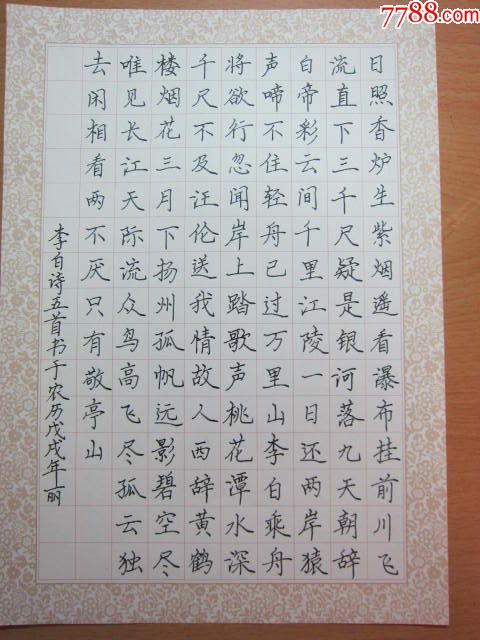 7788.com
日照香炉生紫烟遥看瀑布挂前川飞
流直下三千尺疑是银河落九天朝辞
白帝彩云间千里江陵一日还两岸猿
声啼不住轻舟已过万里山李白乘舟
将欲行忽闻岸上踏歌声桃花潭水深
千尺不及汪伦送我情故人西辞黄鹤
楼烟花三月下扬州孤帆远影碧空尽
唯见长江天际流众鸟高飞尽孤云独
去闲相看两不厌只有敬亭山
李白诗五首书于农历戊戌年丽